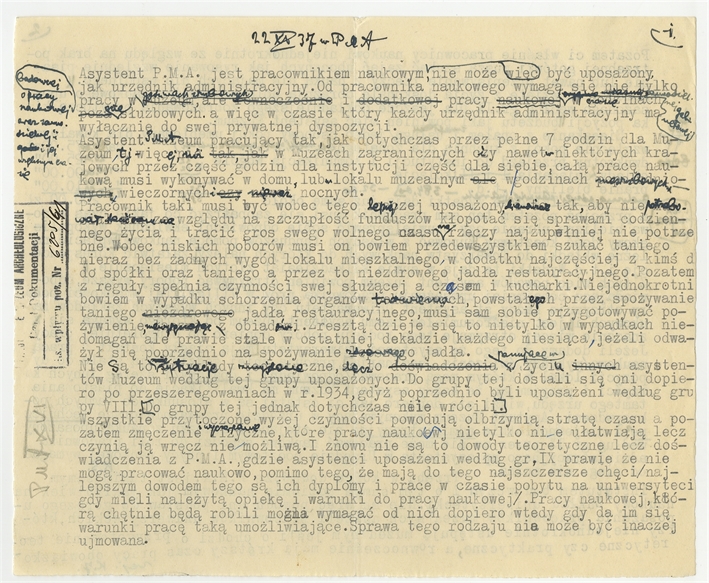 22 XI 37 w PMA
-1-
Asystent P.M.A. jest pracownikiem naukowym nie może więc być uposażony,
jak urzędnik administracyjny. Od pracownika naukowego wymaga się nie tylko
pracy w ale równocześnie i dodatkowej pracy naukowej
służbowych. a więc w czasie który każdy urzędnik administracyjny ma
wyłącznie do swej prywatnej dyspozycji.
Asystent Muzeum pracujący tak, jak dotychczas przez pełne 7 godzin dla Mu-
zeum tj więcej, niż tak, jak w Muzeach zagranicznych czy nawet w niektórych kra-
jowych, część dnia dla instytucji część dla siebie, całą pracę nau-
kową musi wykonywać w domu, lub w lokalu muzealnym ale w godzinach
wieczornych nocnych.
Pracownik taki musi być wobec tego lepiej uposażony, tak, aby nie potrzebo-
wał względu na szczupłość funduszów kłopotać się sprawami codzien-
nego życia i tracić gros swego wolnego czasu na rzeczy najzupełniej nie potrze
bne. Wobec niskich poborów musi on bowiem przedewszystkiem szukać taniego
nieraz bez żadnych wygód lokalu mieszkalnego, w dodatku najczęściej z kimś d
do spółki oraz taniego a przez to niezdrowego jadła restauracyjnego. Pozatem
z reguły spełnia czynności swej służącej a sem i kucharki. Niejednokrotni
bowiem w wypadku schorzenia organów trawienia, powstałego przez spożywanie
taniego niezdrowego jadła restauracyjnego, musi sam sobie przygotowywać po-
żywienie obiadów. Zresztą dzieje się to nietylko w wypadkach nie-
domagań ale prawie stale w ostatniej dekadzie każdego miesiąca, jeżeli odwa-
żył się poprzednio na spożywanie zdrowego jadła.
Nie są to wywody teoretyczne, lecz doświadczenia z życiu innych asysten-
tów Muzeum według tej grupy uposażonych. Do grupy tej dostali się oni dopie-
ro po przeszeregowaniach w r. 1934, gdyż poprzednio byli uposażeni według gru
py VIII. Do grupy tej jednak dotychczas nie wrócili.
Wszystkie przytoczone wyżej czynności powodują olbrzymią stratę czasu a po-
zatem zmęczenie fizyczne, które pracy naukowej nietylko nie ułatwiają lecz
czynią ją wręcz niemożliwą. I znowu nie są to dowody teoretyczne lecz doś-
wiadczenia z P.M.A., gdzie asystenci uposażeni według gr, IX prawie że nie
mogą pracować naukowo, pomimo tego, że mają do tego najszczersze chęci/naj-
lepszym dowodem tego są ich dyplomy i prace w czasie pobytu na uniwersyteci
gdy mieli należytą opiekę i warunki do pracy naukowej/. Pracy naukowej, któ-
rą chętnie będą robili można wymagać od nich dopiero wtedy gdy da im się
warunki pracę taką umożliwiające. Sprawa tego rodzaju nie może być inaczej
ujmowana.
MUZEUM ARCHEOLOGICZNE
Dział Dokumentacji
ks. wpływu poz. Nr 6205/64
PMA XVI